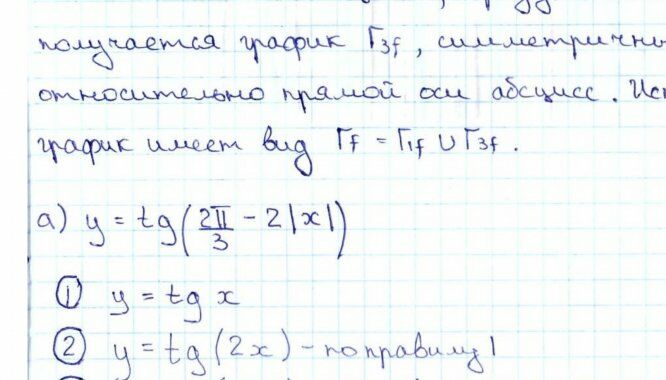 получается график Г3f, симметричны
относительно прямой оси абсцисс. Ис
график имеет вид Гf = Г1f ∪ Г3f.
а) y = tg(2π/3 - 2|x|)
① y = tg x
② y = tg(2x) - по правилу 1